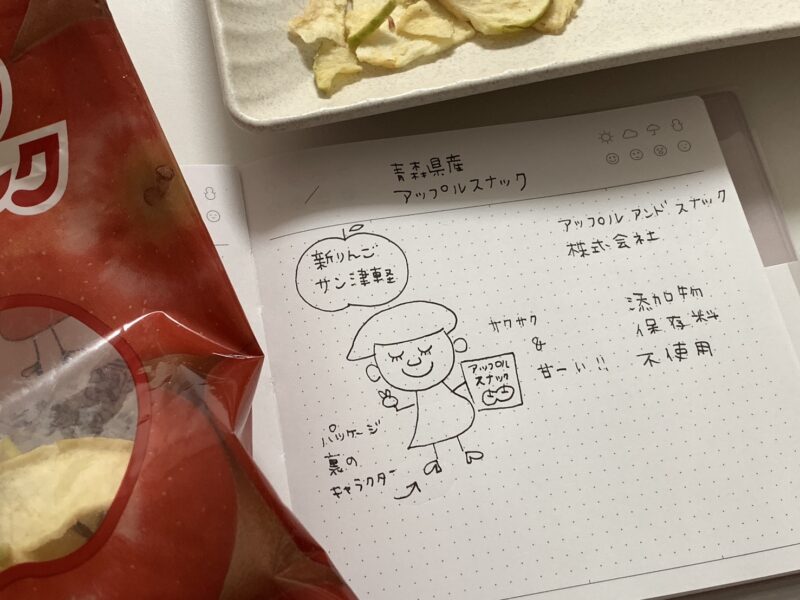 青森県産
アップルスナック
アップル アンド スナック
株式会社
新りんご
サン津軽
サクサク
&
甘ーい!!
添加物
保存料
不使用
アップル
スナック
パッケージ
裏の
キャラクター
ック